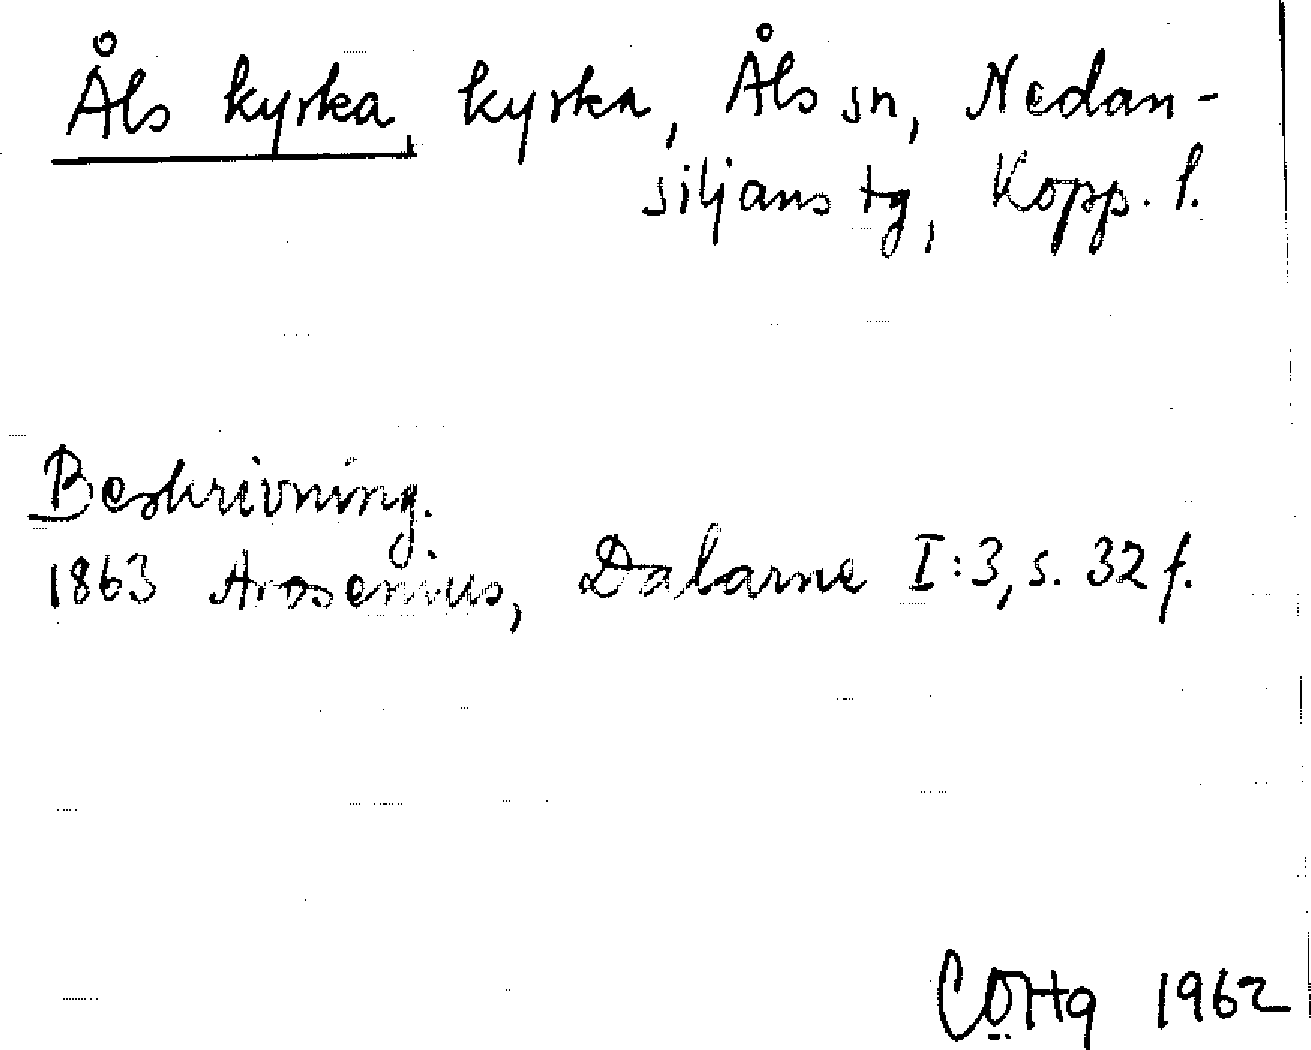 Åls kyrka, kyrka, Åls sn, Nedan-
siljans tg, Kopp. l.
Beskrivning.
1863 Arosenius, Dalarne I:3, s. 32 f.
1962